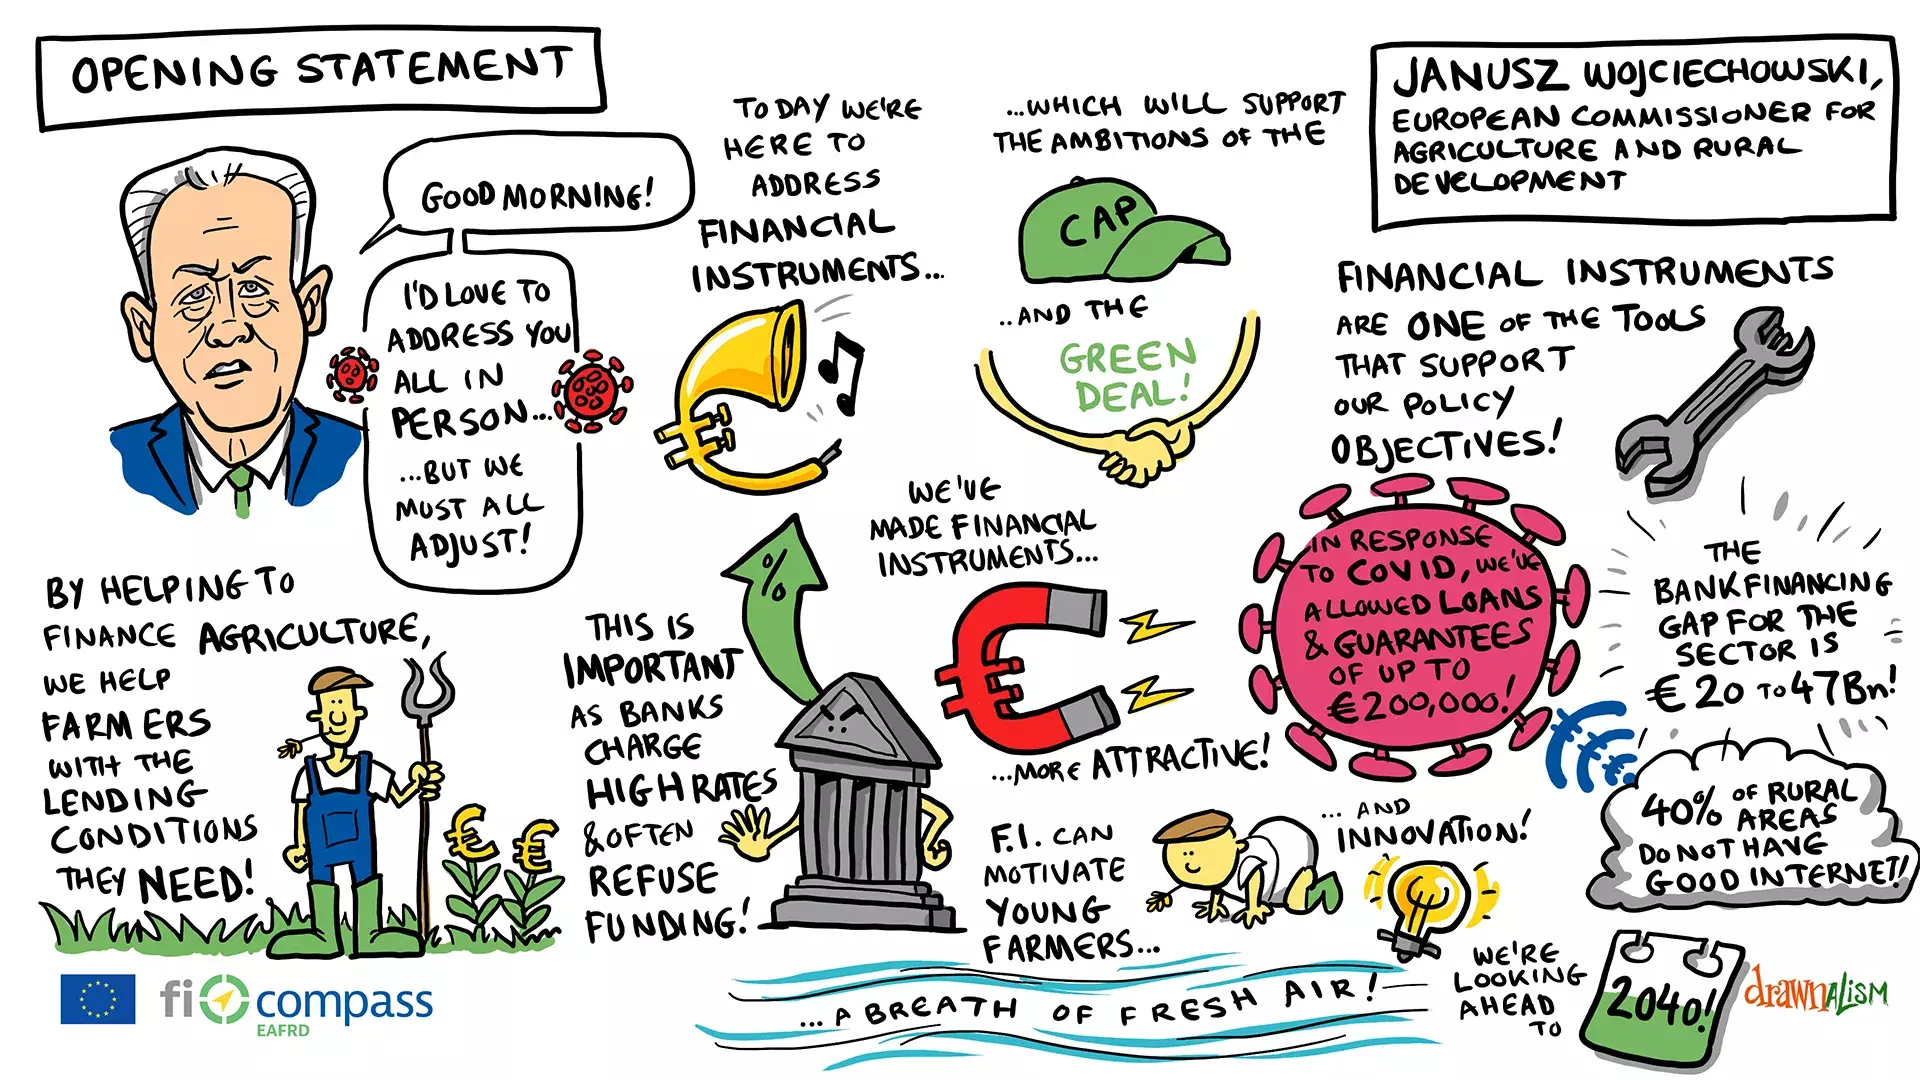 OPENING STATEMENT
GOOD MORNING!
I'D LOVE TO
ADDRESS YOU
ALL IN
PERSON...
...BUT WE
MUST ALL
ADJUST!
TODAY WE'RE
HERE TO
ADDRESS
FINANCIAL
INSTRUMENTS...
...WHICH WILL SUPPORT
THE AMBITIONS OF THE
CAP
..AND THE
GREEN
DEAL!
JANUSZ WOJCIECHOWSKI,
EUROPEAN COMMISSIONER FOR
AGRICULTURE AND RURAL
DEVELOPMENT
FINANCIAL INSTRUMENTS
ARE ONE OF THE TOOLS
THAT SUPPORT
OUR POLICY
OBJECTIVES!
BY HELPING TO
FINANCE AGRICULTURE,
WE HELP
FARMERS
WITH THE
LENDING
CONDITIONS
THEY NEED!
€ €
THIS IS
IMPORTANT
AS BANKS
CHARGE
HIGH RATES
& OFTEN
REFUSE
FUNDING!
%
WE'VE
MADE FINANCIAL
INSTRUMENTS...
€
...MORE ATTRACTIVE!
IN RESPONSE
TO COVID, WE'VE
ALLOWED LOANS
& GUARANTEES
OF UP TO
€200,000!
THE
BANK FINANCING
GAP FOR THE
SECTOR IS
€ 20 TO 47Bn!
€€€
40% OF RURAL
AREAS
DO NOT HAVE
GOOD INTERNET!
F.I. CAN
MOTIVATE
YOUNG
FARMERS...
... AND
INNOVATION!
...A BREATH OF FRESH AIR!
WE'RE
LOOKING
AHEAD
TO
2040!
fi compass
EAFRD
drawnALISM